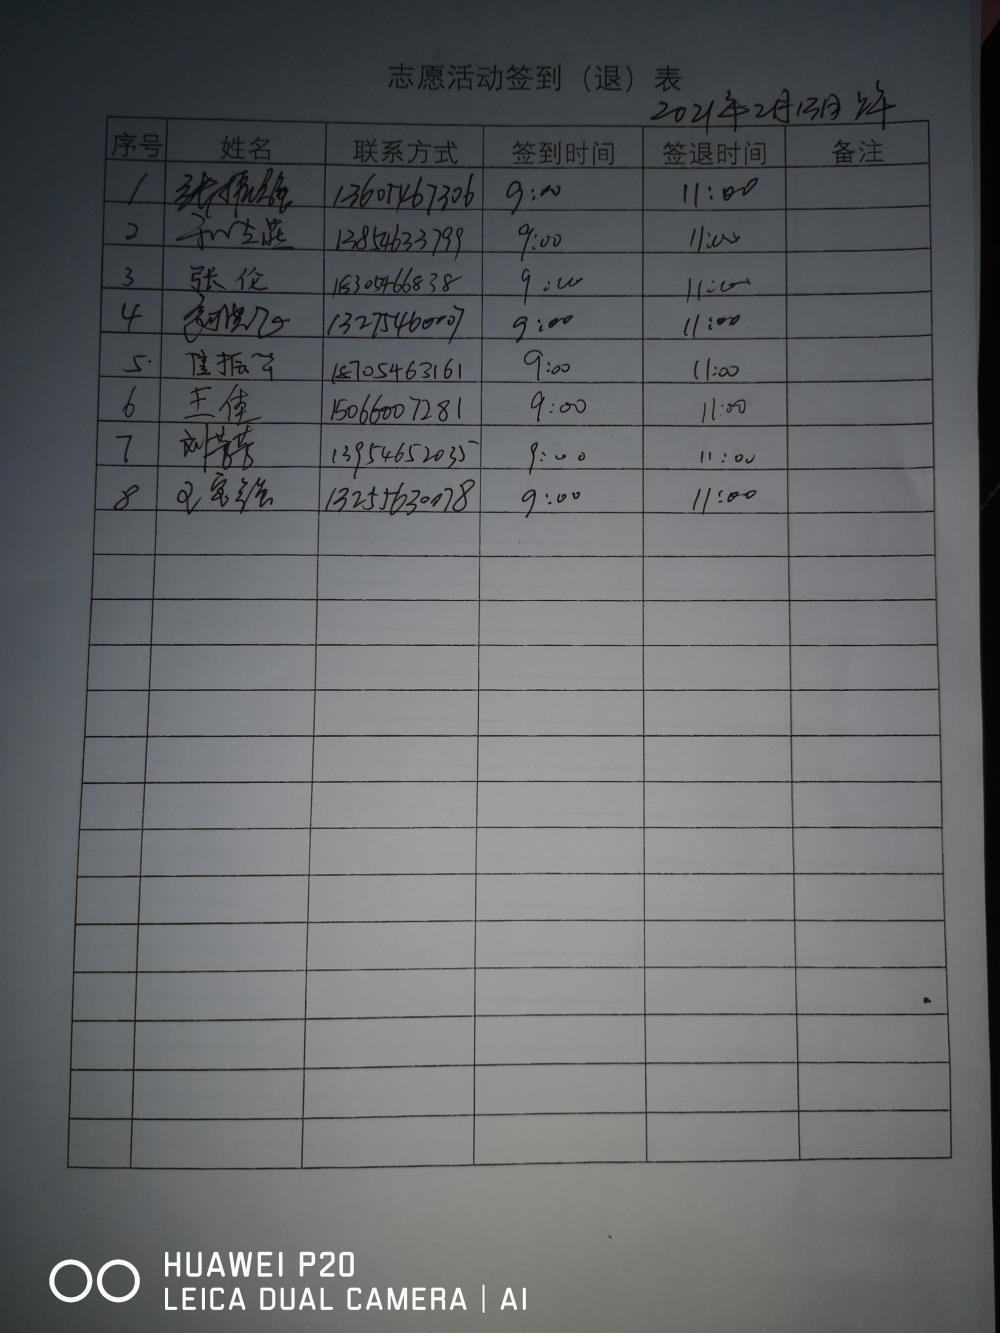 志愿活动签到（退）表
2021年2月13日 上午
序号 姓名 联系方式 签到时间 签退时间 备注
1 13605467306 9:00 11:00
2 13854633799 9:00 11:00
3 张伦 18305466838 9:00 11:00
4 13275460007 9:00 11:00
5 18705463161 9:00 11:00
6 王佳 15066007281 9:00 11:00
7 刘芳芳 13954652035 9:00 11:00
8 13255630078 9:00 11:00
HUAWEI P20
LEICA DUAL CAMERA | AI